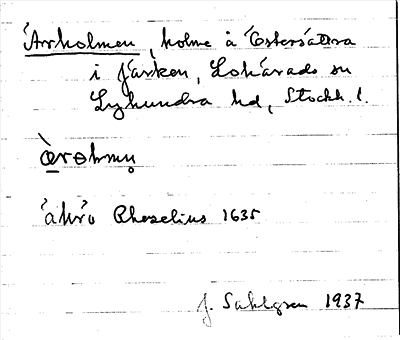 Årholmen, holme å Östersättra
i Järken, Lohärads sn
Lyhundra hd, Stockh. l.
åhrö Rhezelius 1635
J. Sahlgren 1937